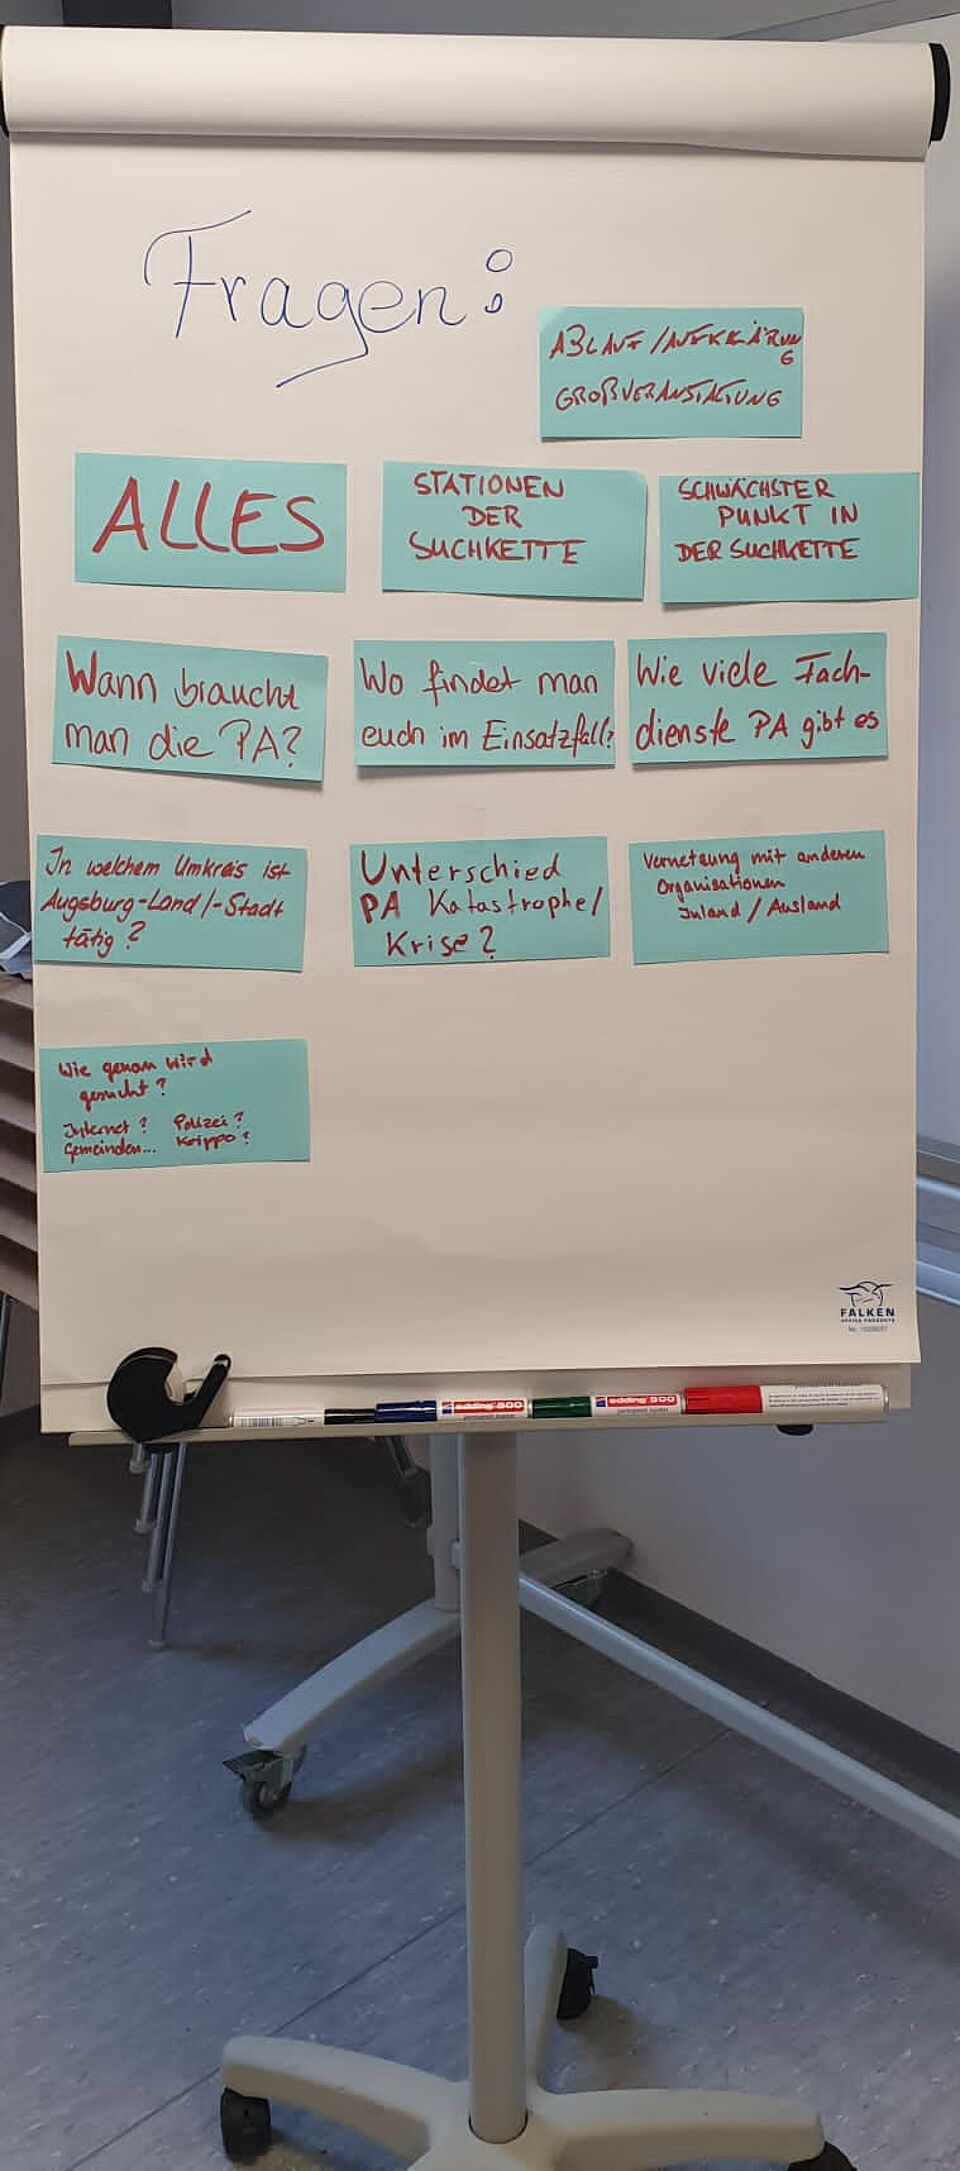 Fragen:
ABLAUF/AUFKLÄRUN
G
GROßVERANSTALTUNG
ALLES
STATIONEN
DER
SUCHKETTE
SCHWÄCHSTER
PUNKT IN
DER SUCHKETTE
Wann braucht
man die PA?
Wo findet man
euch im Einsatzfall?
Wie viele Fach-
dienste PA gibt es
In welchem Umkreis ist
Augsburg-Land/-Stadt
tätig?
Unterschied
PA Katastrophe/
Krise?
Vernetzung mit anderen
Organisationen
Inland / Ausland
Wie genau wird
gesucht?
Internet? Polizei?
Gemeinden... Krippo?
FALKEN
OFFICE PRODUCTS
edding 500
permanent marker
edding 500
permanent marker